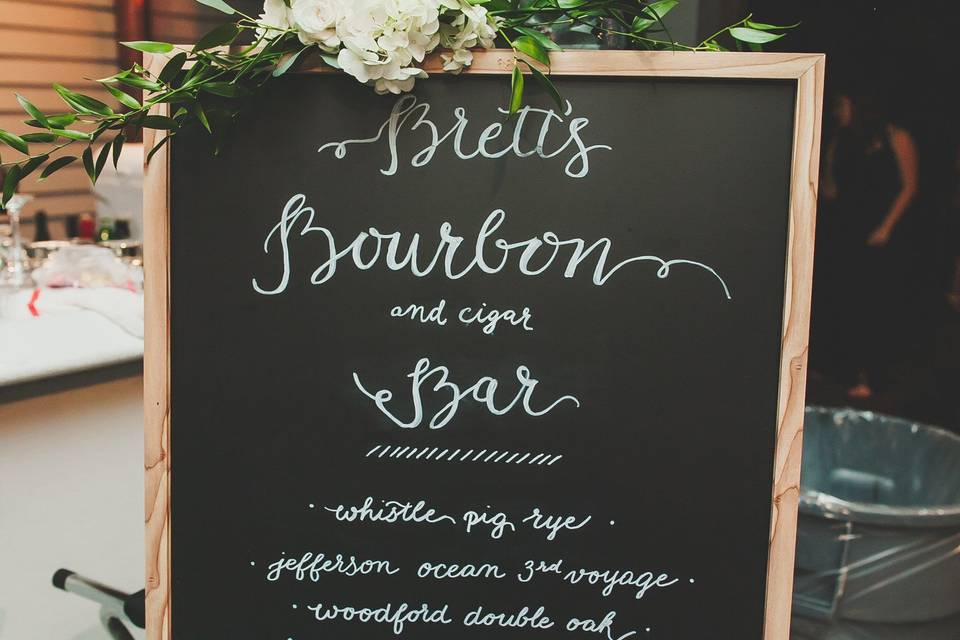 Brett's
Bourbon
and cigar
Bar
· whistle pig rye ·
· jefferson ocean 3rd voyage ·
· woodford double oak ·